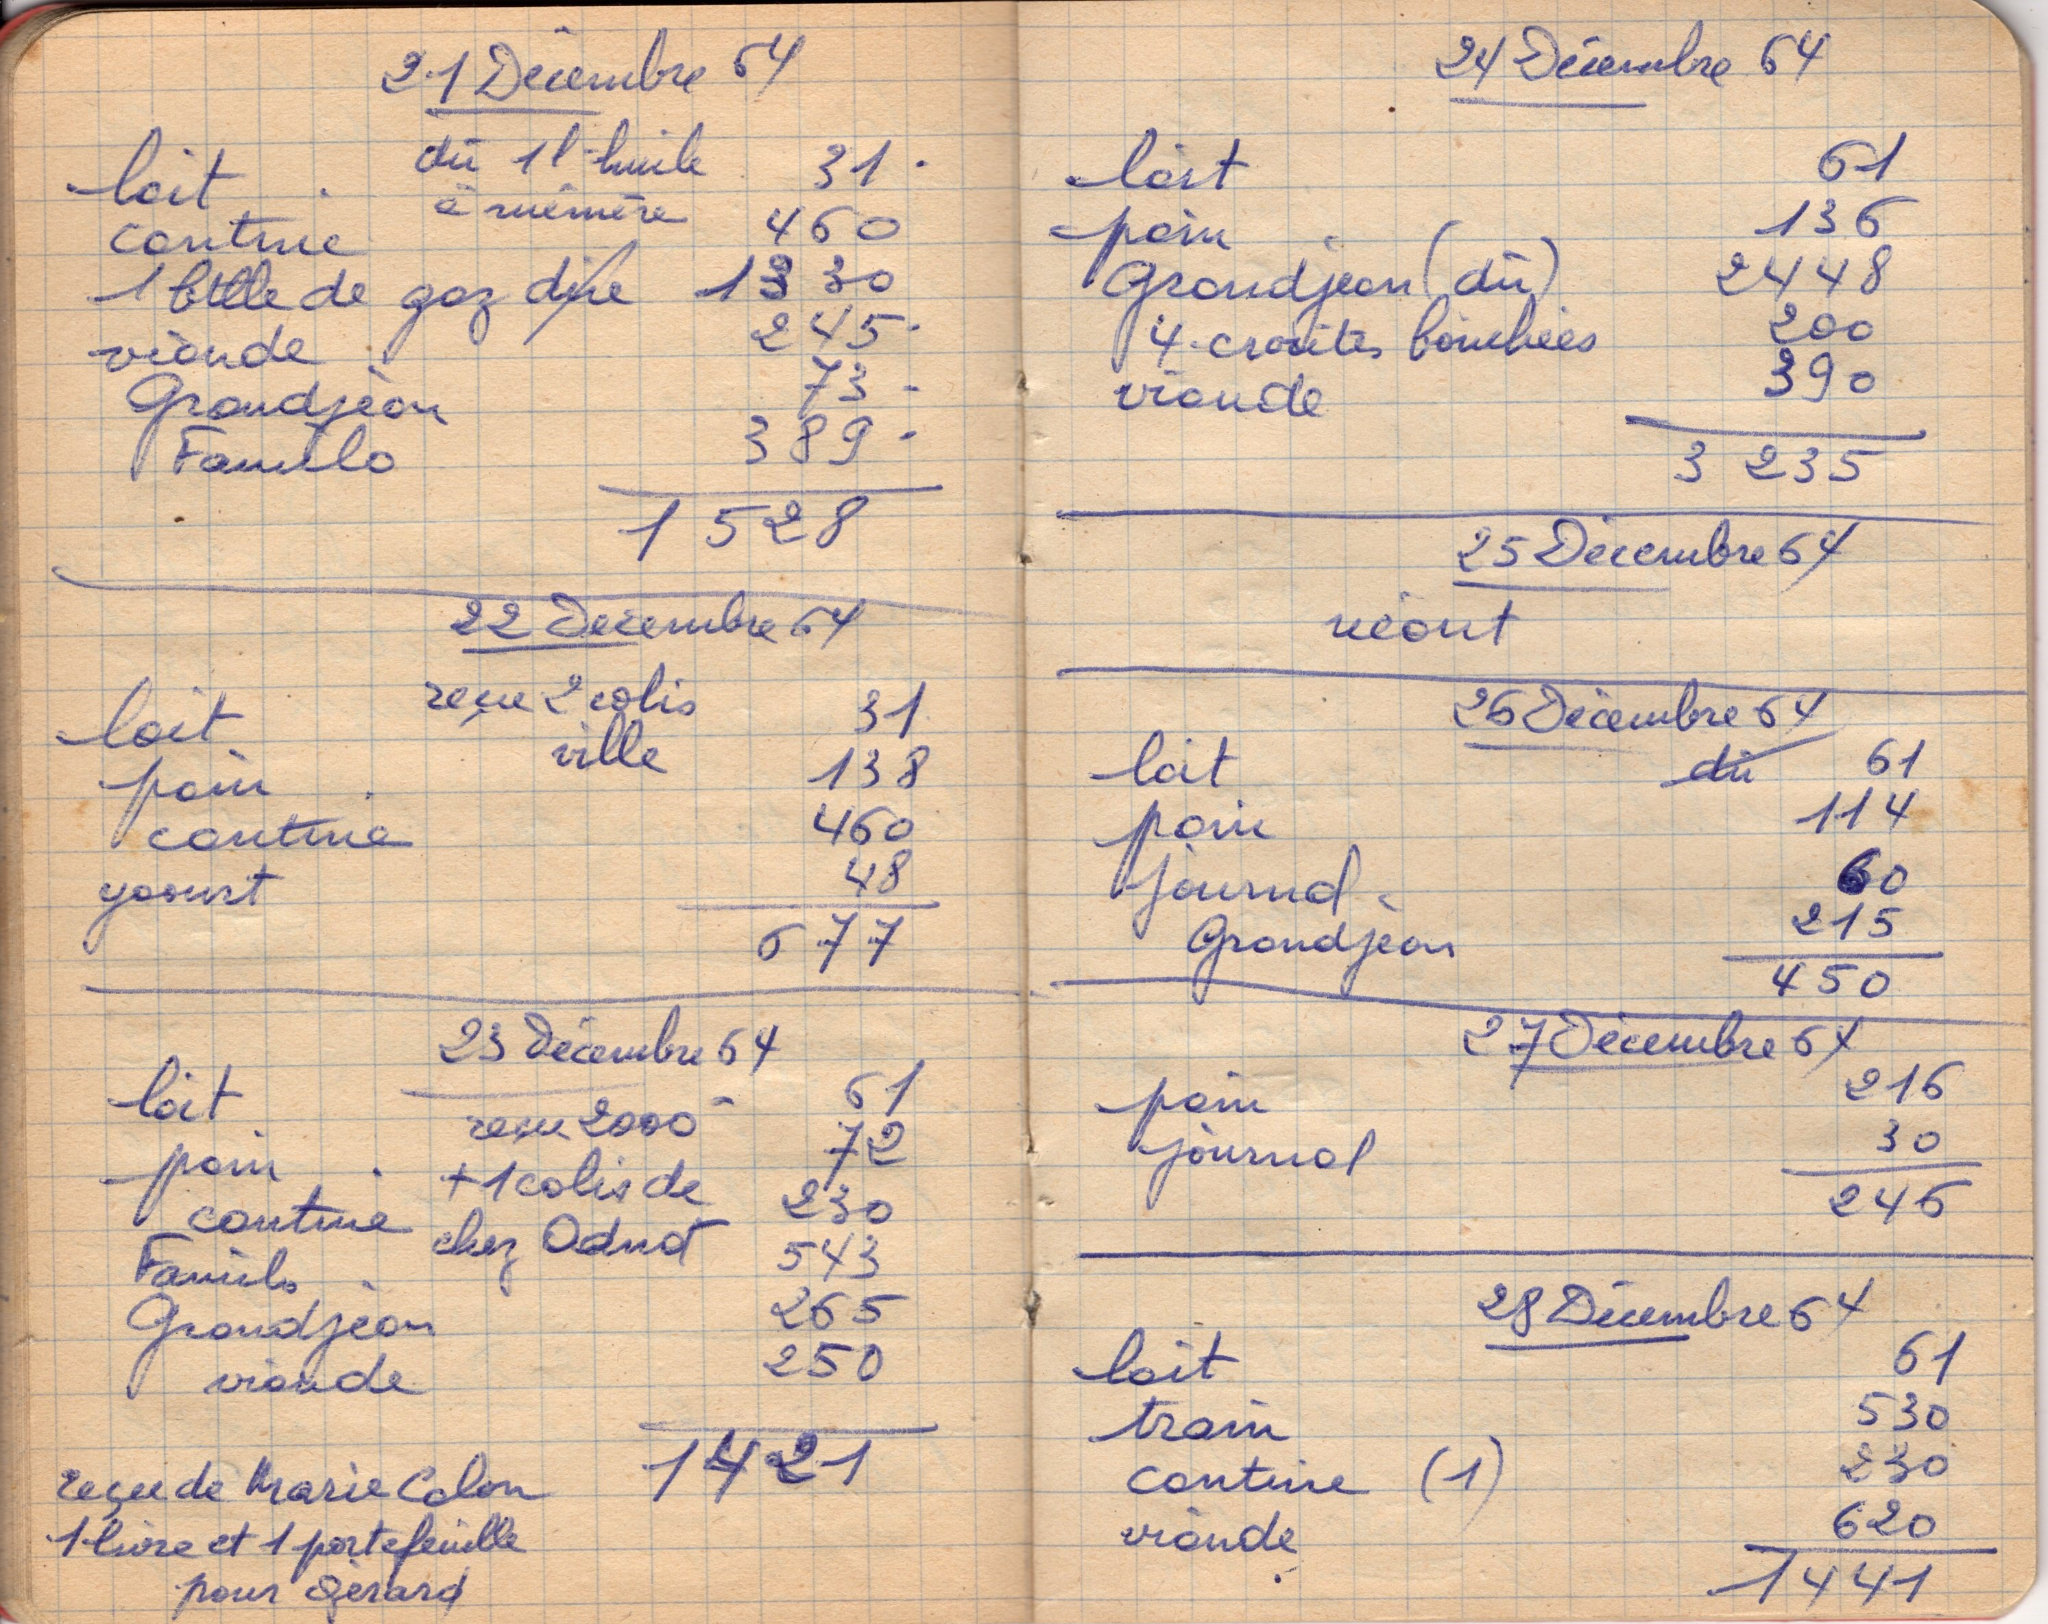 21 Décembre 64
lait dû 1l huile 31
à mémère
cantine 460
1 btlle de gaz dûe 1330
viande 245
Grandjean 73
Familo 389
1528
22 Décembre 64
lait reçu 2 colis 31
ville
pain 138
cantine 460
yaourt 48
677
23 Décembre 64
lait 61
reçu 2000
pain 72
+ 1 colis de
cantine 230
chez Odnot
Familo 543
Grandjean 265
viande 250
1421
reçu de Marie Colon
1 livre et 1 portefeuille
pour Gérard
24 Décembre 64
lait 61
pain 136
Grandjean (dû) 2448
4 croûtes bouchées 200
viande 390
3235
25 Décembre 64
néant
26 Décembre 64
lait dû 61
pain 114
journal 60
Grandjean 215
450
27 Décembre 64
pain 216
journal 30
246
28 Décembre 64
lait 61
train 530
cantine (1) 230
viande 620
1441